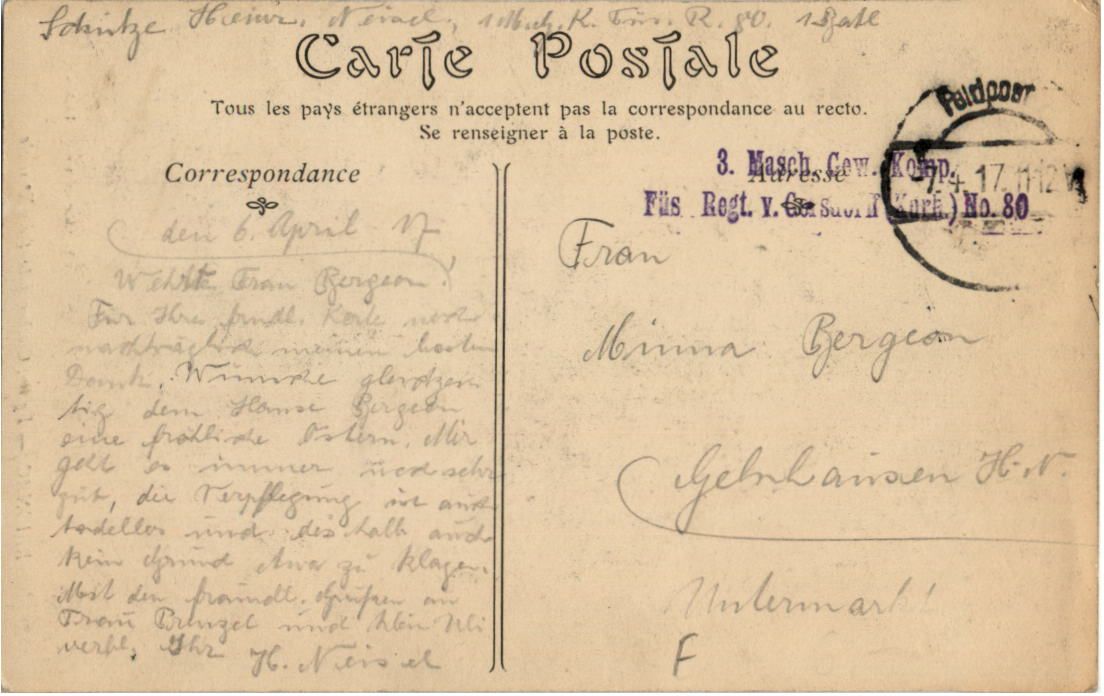 Schütze Heinr. Neisel, 1 M.G.K. Füs. R. 80. 1 Batl
Carte Postale
Tous les pays étrangers n'acceptent pas la correspondance au recto.
Se renseigner à la poste.
Feldpost
7.4.17.11-12V
3. Masch. Gew. Komp.
Füs. Regt. v. Gersdorff (Kurh.) No. 80
Correspondance
Adresse
den 6. April 17
Wehrte Frau Bergeon!
Für Ihre frndl. Karte noch
nachträglich meinen besten
Dank. Wünsche gleichzei-
tig dem Hause Bergeon
eine fröhliche Ostern. Mir
geht es immer noch sehr
gut, die Verpflegung ist auch
tadellos und deshalb auch
kein Grund etwas zu klagen.
Mit den freundl. Grüßen an
Frau und klein
verbl. Ihr H. Neisel
Frau
Minna Bergeon
Gelnhausen H.-N.
Untermarkt
F